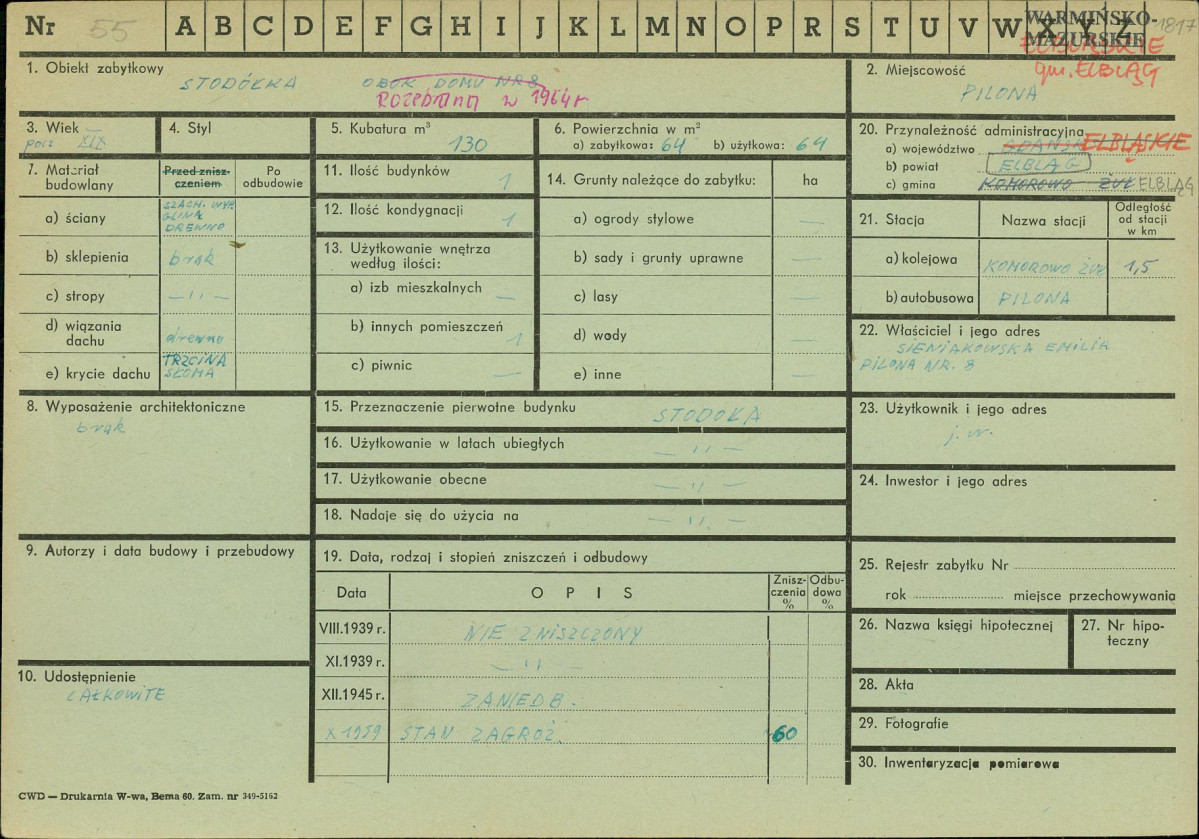 Nr 55 A B C D E F G H I J K L M N O P R S T U V W X Y Z 1817
WARMIŃSKO-
MAZURSKIE
gm. ELBLĄG
1. Obiekt zabytkowy
STODÓŁKA OBOK DOMU NR 8
Rozebrana w 1964 r
2. Miejscowość
PILONA
3. Wiek
poł: XIX
4. Styl
5. Kubatura m³
130
6. Powierzchnia w m²
a) zabytkowa: 64 b) użytkowa: 64
20. Przynależność administracyjna
a) województwo GDAŃSK ELBLĄSKIE
b) powiat ELBLĄG
c) gmina KOMOROWO ŻUŁ ELBLĄG
7. Materiał budowlany
Przed znisz-
czeniem
Po
odbudowie
a) ściany SZACH. WYP.
GLINA
DREWNO
b) sklepienia brak
c) stropy —"—
d) wiązania
dachu drewno
e) krycie dachu TRZCINA
SŁOMA
11. Ilość budynków 1
12. Ilość kondygnacji 1
13. Użytkowanie wnętrza
według ilości:
a) izb mieszkalnych —
b) innych pomieszczeń 1
c) piwnic —
14. Grunty należące do zabytku: ha
a) ogrody stylowe —
b) sady i grunty uprawne —
c) lasy —
d) wody —
e) inne —
21. Stacja Nazwa stacji Odległość
od stacji
w km
a) kolejowa KOMOROWO ŻUŁ 1,5
b) autobusowa PILONA
22. Właściciel i jego adres
SIENIAKOWSKA EMILIA
PILONA NR. 8
8. Wyposażenie architektoniczne
brak
15. Przeznaczenie pierwotne budynku STODOŁA
16. Użytkowanie w latach ubiegłych —"—
17. Użytkowanie obecne —"—
18. Nadaje się do użycia na —"—
23. Użytkownik i jego adres
j. w.
24. Inwestor i jego adres
9. Autorzy i data budowy i przebudowy
19. Data, rodzaj i stopień zniszczeń i odbudowy
Data OPIS Znisz-
czenia
% Odbu-
dowa
%
VIII.1939 r. NIE ZNISZCZONY
XI.1939 r. —"—
XII.1945 r. ZANIEDB.
X 1959 STAN ZAGROŻ. 60
25. Rejestr zabytku Nr
rok miejsce przechowywania
26. Nazwa księgi hipotecznej
27. Nr hipo-
teczny
10. Udostępnienie
CAŁKOWITE
28. Akta
29. Fotografie
30. Inwentaryzacja pomiarowa
CWD — Drukarnia W-wa, Bema 60. Zam. nr 349-5162